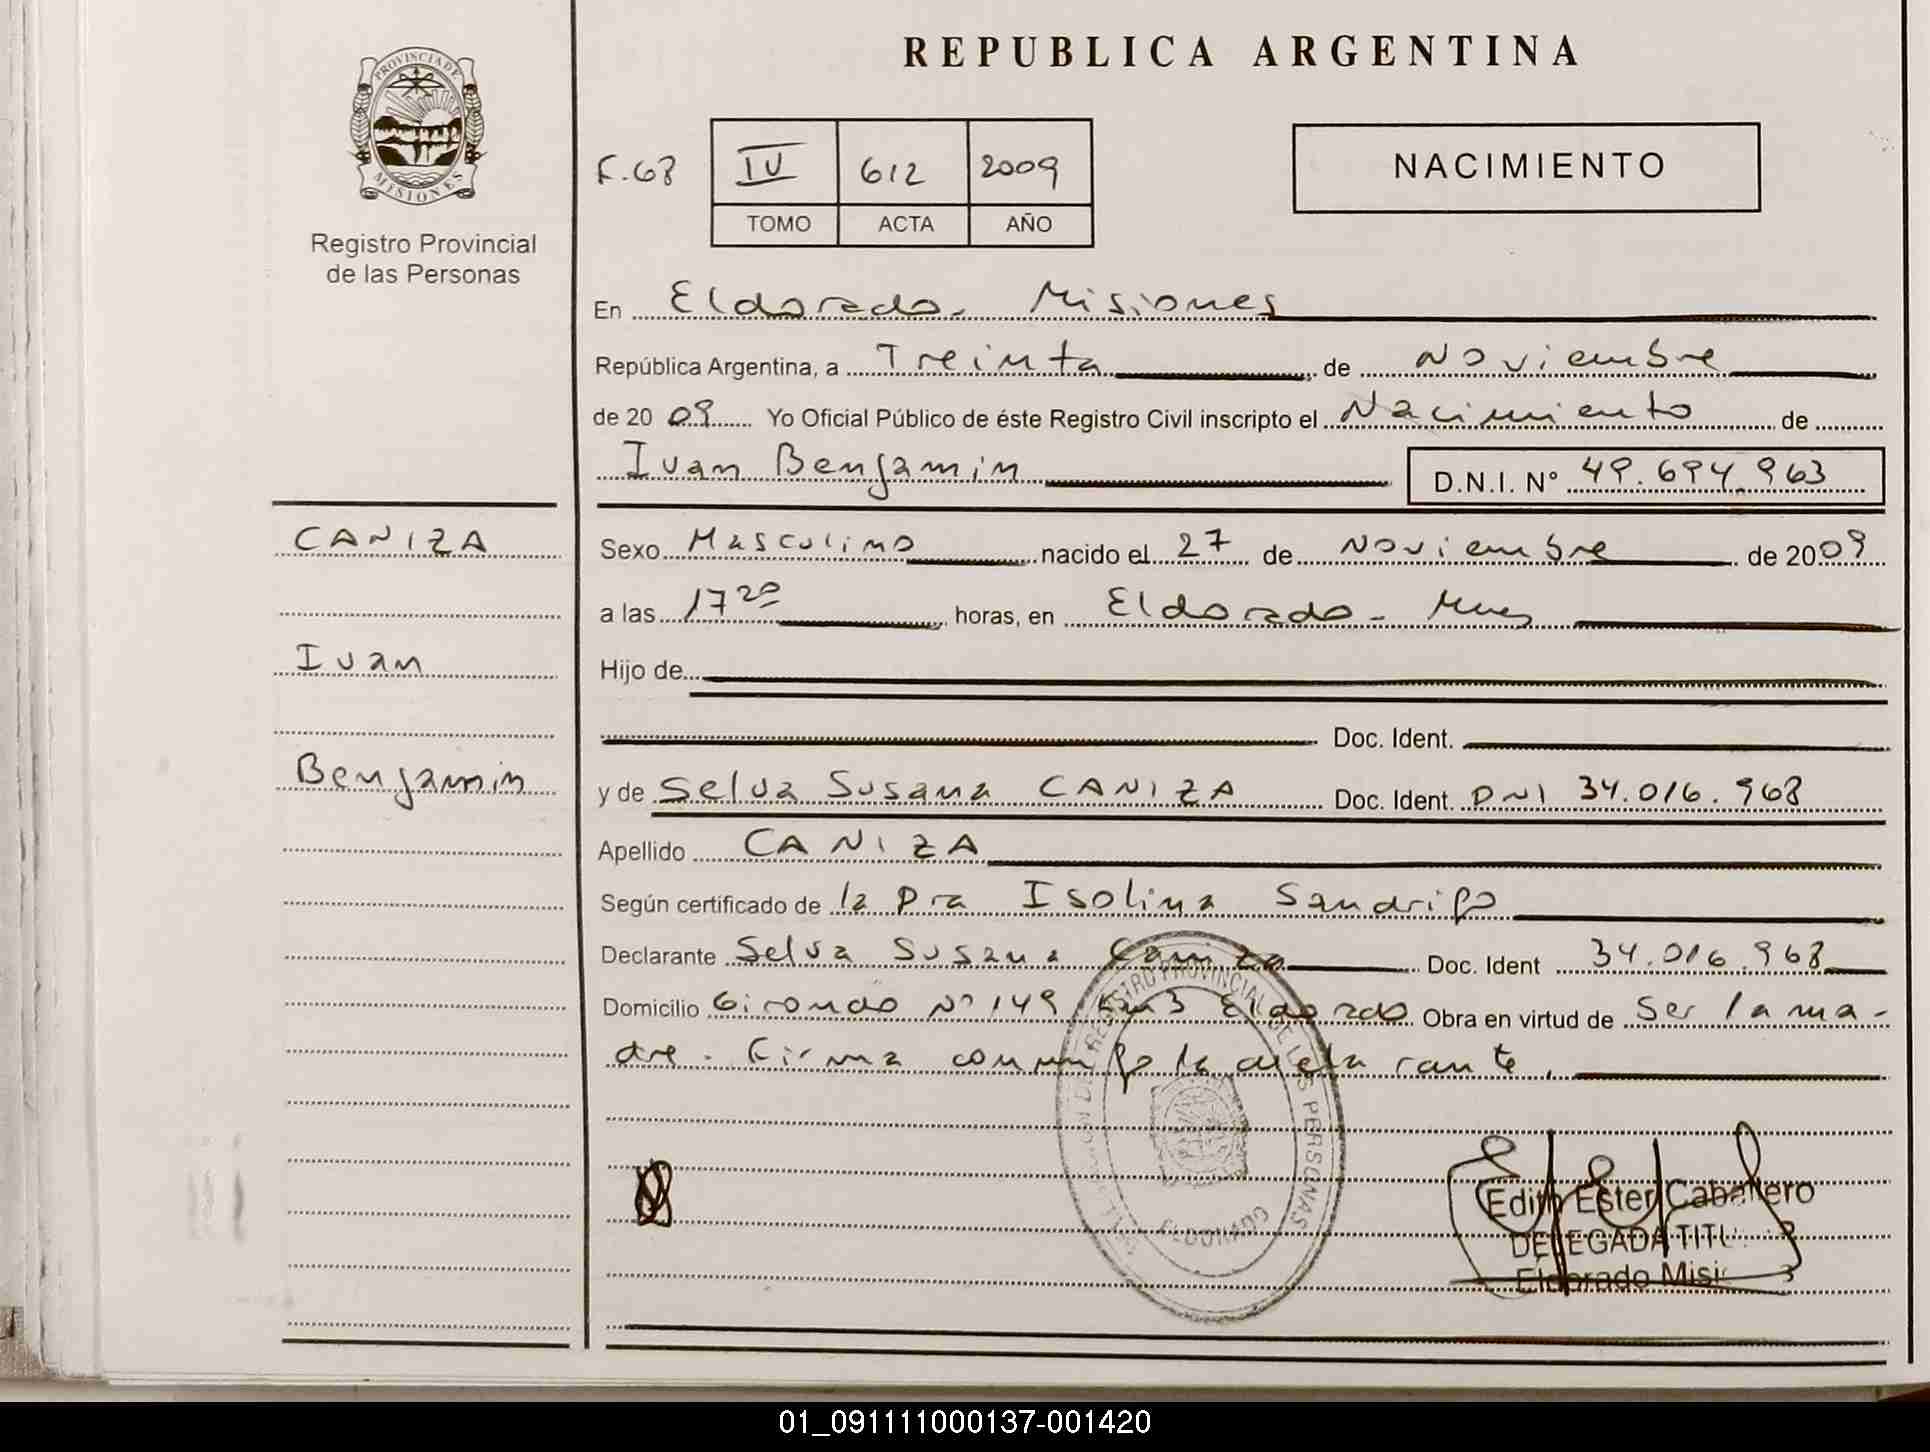 REPUBLICA ARGENTINA
PROVINCIA DE
MISIONES
Registro Provincial
de las Personas
F. 68 IV 612 2009
TOMO ACTA AÑO
NACIMIENTO
En Eldorado - Misiones
República Argentina, a Treinta de Noviembre
de 2009 Yo Oficial Público de éste Registro Civil inscripto el Nacimiento de
Ivan Benjamin D.N.I. N° 49.694.963
CANIZA
Ivan
Benjamin
Sexo Masculino nacido el 27 de Noviembre de 2009
a las 17 20 horas, en Eldorado - Mnes
Hijo de
Doc. Ident.
y de Selva Susana CANIZA Doc. Ident. DNI 34.016.968
Apellido CANIZA
Según certificado de la Dra Isolina Sandrigo
Declarante Selva Susana Caniza Doc. Ident 34.016.968
Domicilio Girondo N° 149 Km 3 Eldorado Obra en virtud de Ser la ma-
dre. Firma conmigo la declarante.
REGISTRO PROVINCIAL DE LAS PERSONAS
ELDORADO
Edith Ester Caballero
DELEGADA TITU
Eldorado Misi
01_091111000137-001420